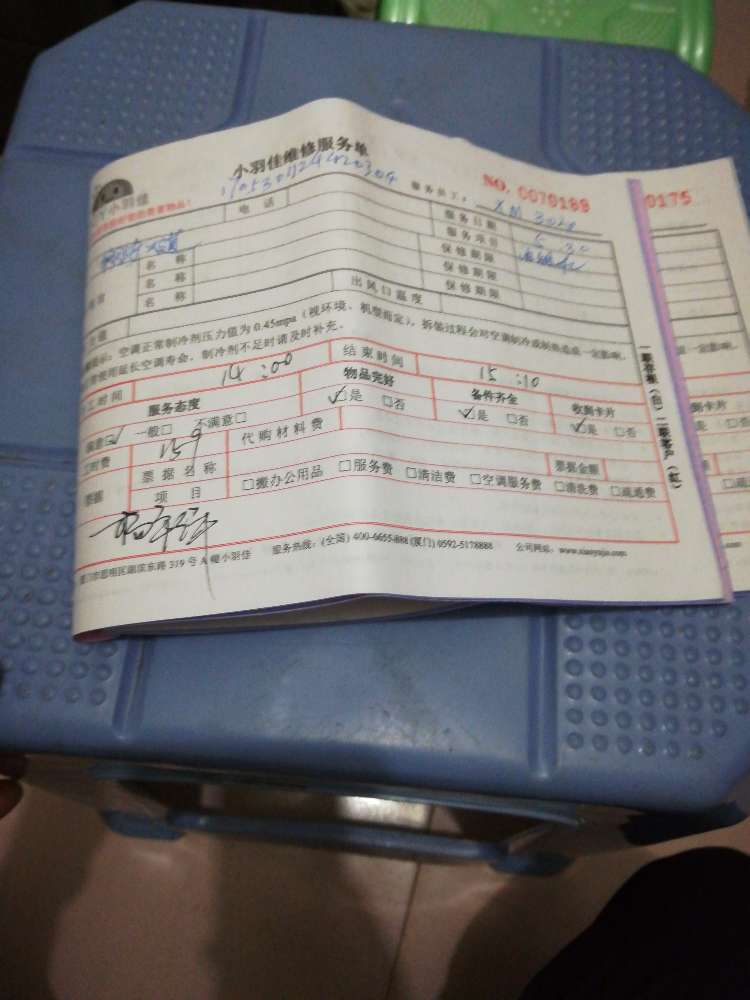 小羽佳维修服务单
小羽佳
NO. 0070189
170530112442030
电 话
服务员工：XM 3020
服务日期 5.30
服务项目
名 称
保修期限
名 称
保修期限
名 称
保修期限
出风口温度
空调正常制冷剂压力值为0.45mpa（视环境、机型而定），拆装过程会对空调制冷或制热造成一定影响，
使用延长空调寿命，制冷剂不足时请及时补充。
工时间 14:00
结束时间 15:10
服务态度
物品完好
备件齐全
收到卡片
满意☑ 一般□ 不满意□
☑是 □否
☑是 □否
☑是 □否
159
代购材料费
票据
票据名称
票据金额
项 目
□搬办公用品 □服务费 □清洁费 □空调服务费 □清洗费 □疏通费
厦门市思明区湖滨东路319号A幢小羽佳 服务热线：(全国) 400-6655-888 (厦门) 0592-5178888 公司网站：www.xiaoyujia.com
一联存根（白）二联客户（红）
0175
卡片
□否